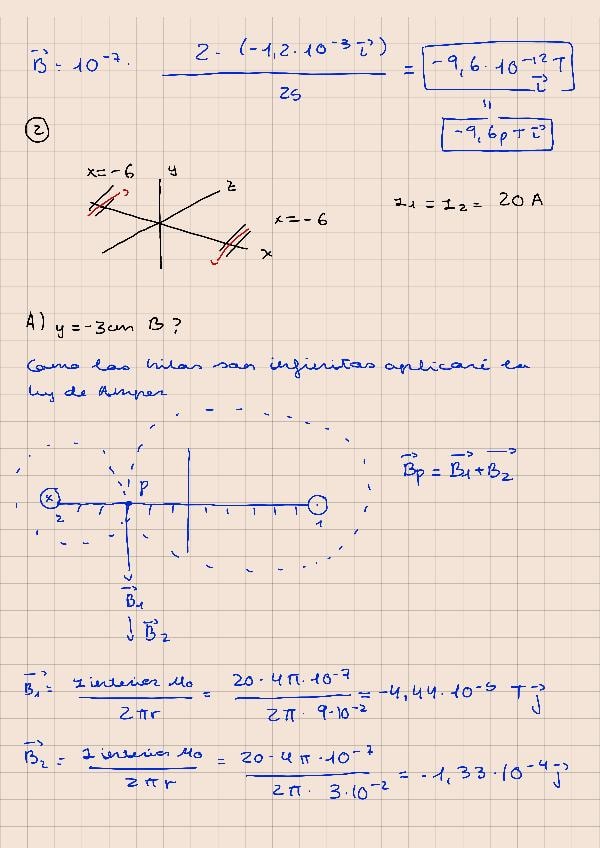 B⃗ = 10⁻⁷ · 2 · (-1,2 · 10⁻³ i⃗) / 25 = -9,6 · 10⁻¹² T i⃗
"
-9,6 p T i⃗
②
x = -6 y
z
x = -6
x
I₁ = I₂ = 20 A
A) y = -3cm B?
Como los hilos son infinitos aplicaré la
ley de Amper
B⃗p = B⃗₁ + B⃗₂
P
x
2 1
B⃗₁
B⃗₂
B⃗₁ = I interior μ₀ / 2πr = 20 · 4π · 10⁻⁷ / 2π · 9·10⁻² = -4,44 · 10⁻⁵ T j⃗
B⃗₂ = I interior μ₀ / 2πr = 20 · 4π · 10⁻⁷ / 2π · 3·10⁻² = -1,33 · 10⁻⁴ j⃗